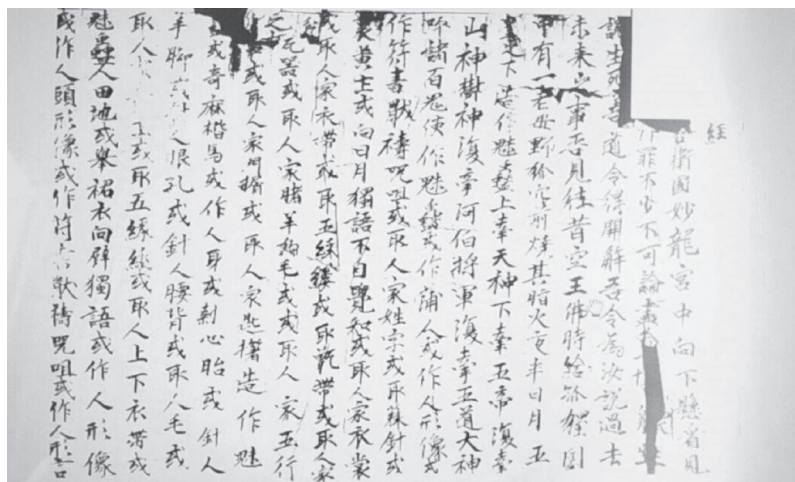 經
舍衛國妙龍宮中向下懸看見
罪不少不可論盡
說生死善道令得開解吾令為汝說過去
未來之事吾見往昔空王佛時給孤獨園
中有一老母野狐窟前燒其脂火夜半日月五
下造作魅蠱上牽天神下牽五帝復牽
山神樹神復牽河伯將軍復牽五道大神
呼諸百鬼使作魅蠱或作蒲人或作人形像或
作符書獸禱咒咀或取人家姓字或取蘇針或
黃土或向日月獨語不自覺知或取人家衣裳
或取人家衣帶或取五綵縷或取靴帶或取人家
之瓦器或取人家賭羊狗毛或或取人家五行
或取人家門橋或取人家匙搔造作魅
或奇麻稭馬或作人身或刺心胎或針人
羊腳或人眼孔或針人腰背或取人毛或
取人或取五綵絲或取人上下衣帶或
魅蠱人田地或舉裙衣向辟獨語或作人形像
或作人頭形像或作符書獸禱咒咀或作人形言